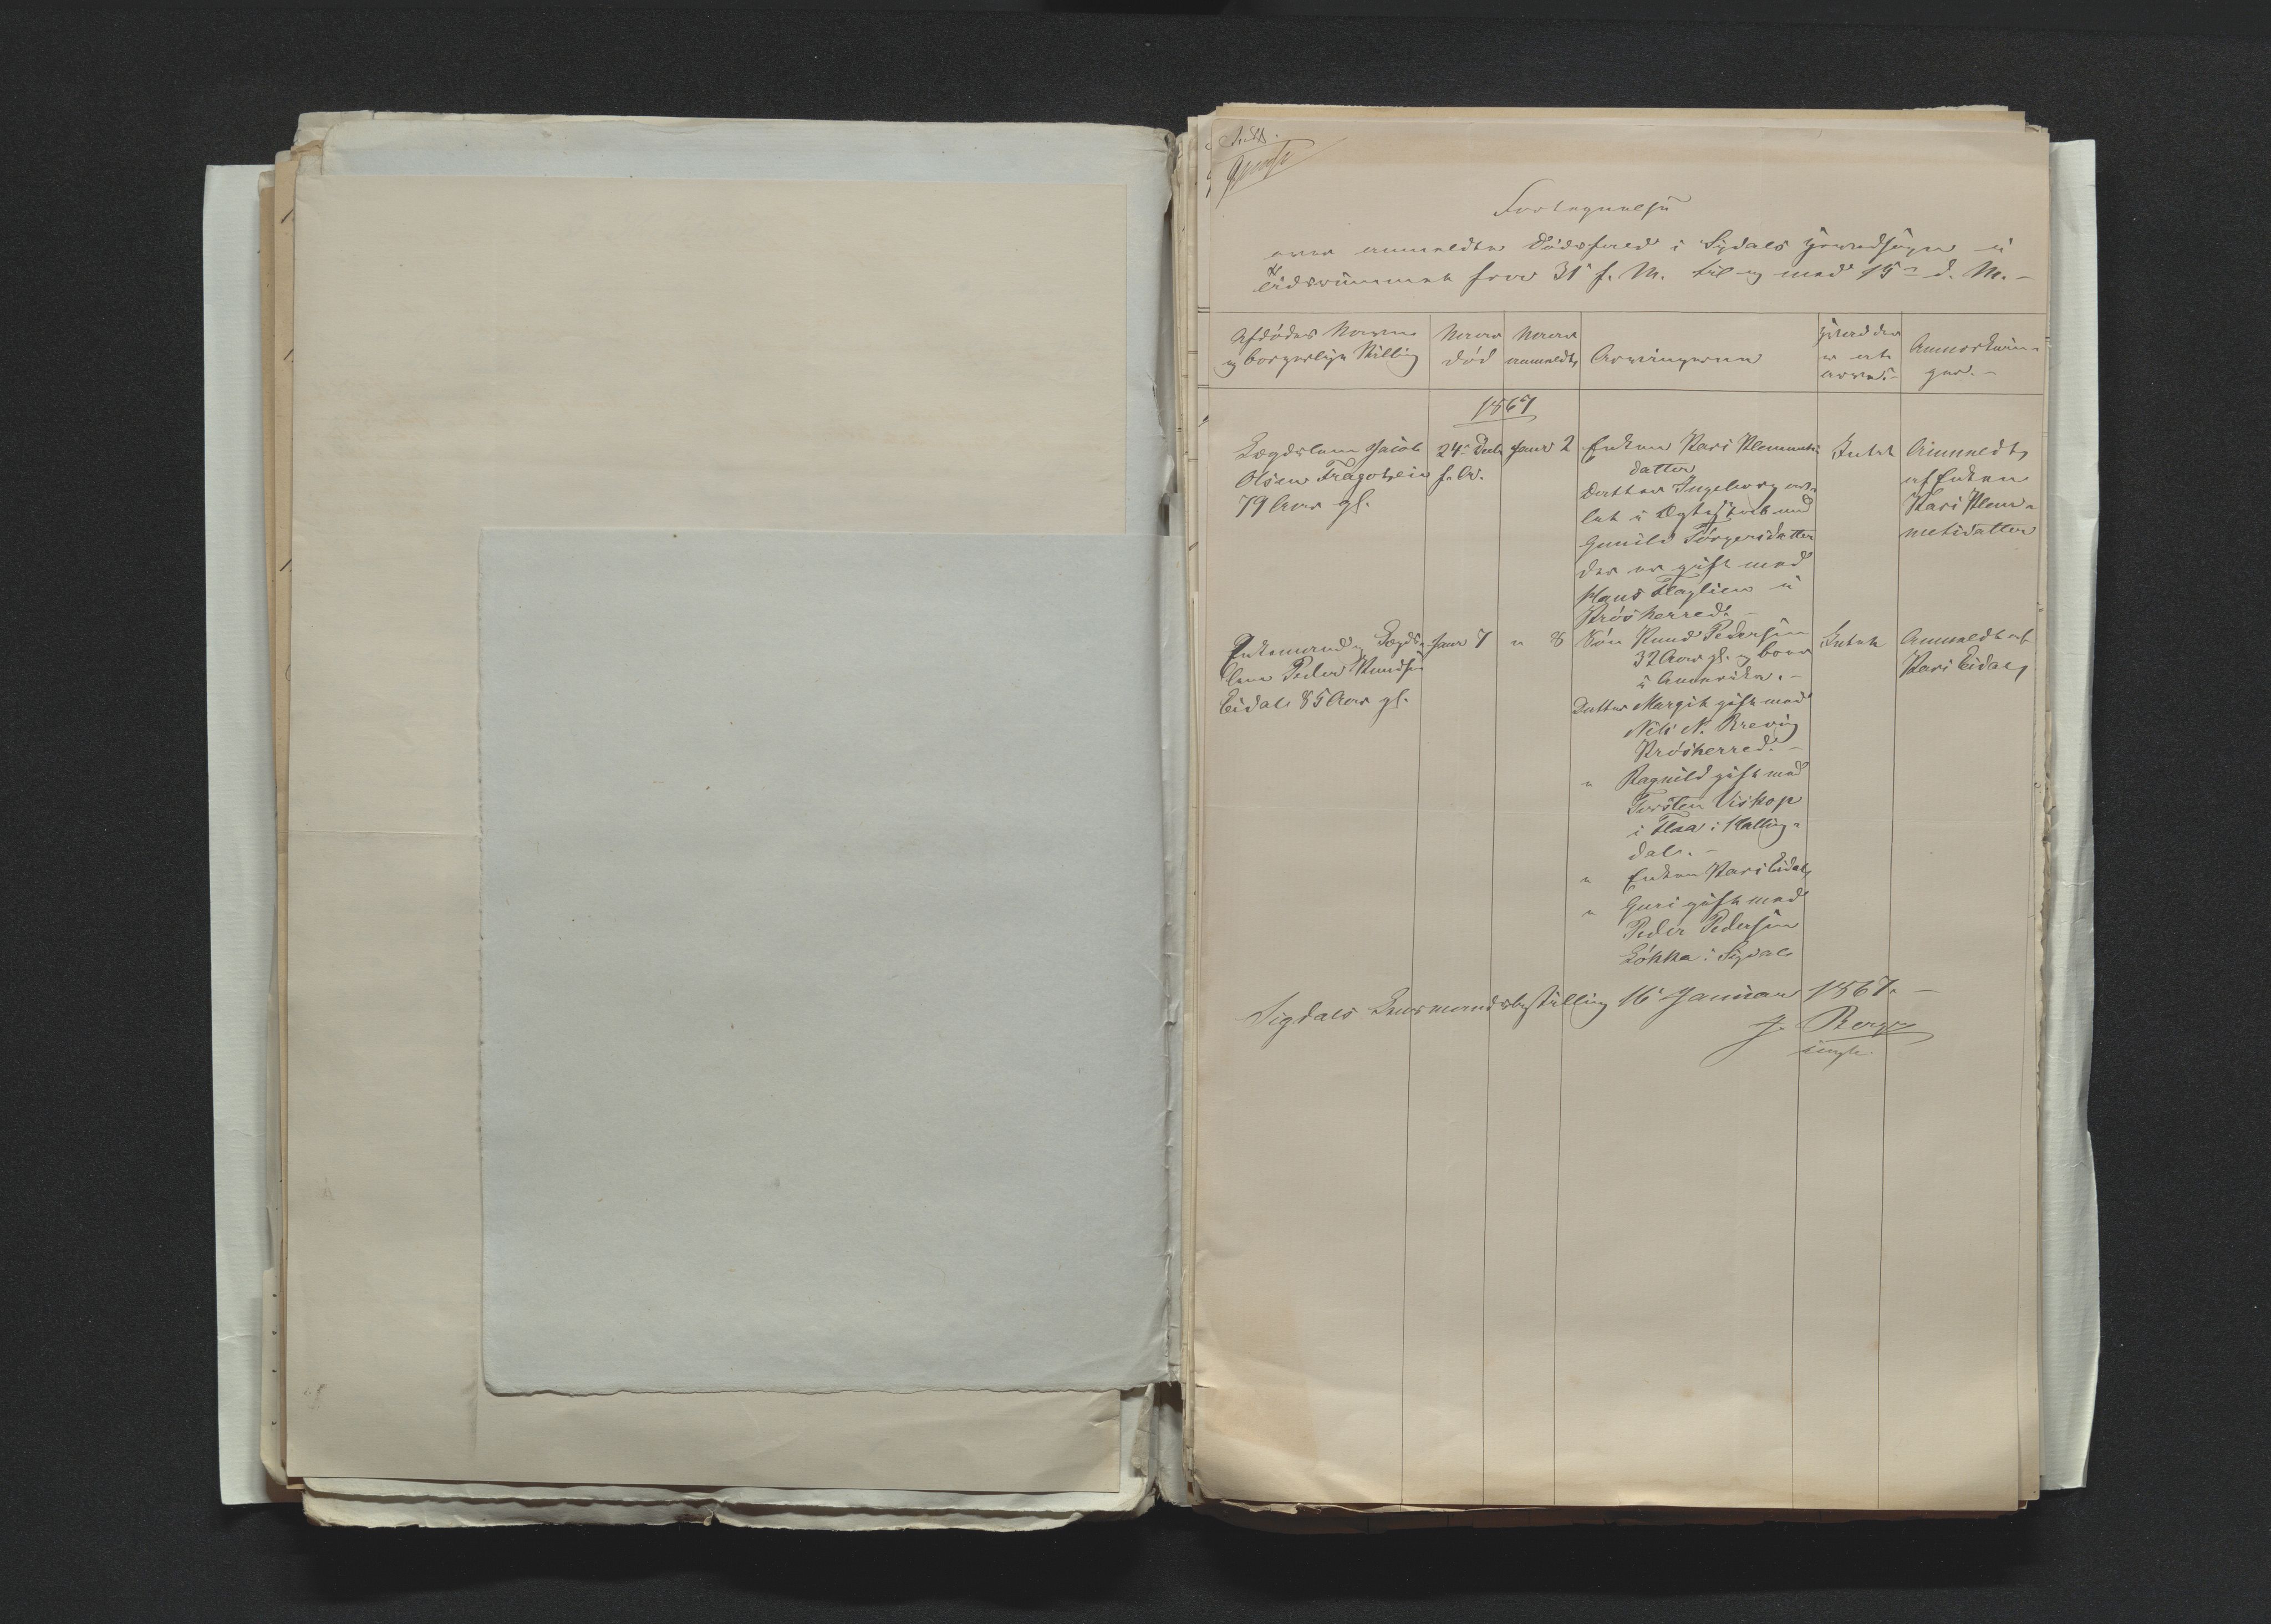 Fortegnelse
over anmeldte Dödsfald i Sigdals Hovedsogn i
Tidsrummet fra 31 f. M. til og med 15de d. M. –
Afdödes Navn
og borgerlige Stilling
Naar
död
Naar
anmeldt
Arvingerne
Hvad der
er at
arve. –
Anmærknin-
ger. –
1867
Lægdslem Jacob
Olsen Fragotein
79 Aar gl.
24. Decb
f. A.
Janr 2
Enken Kari Klemmets-
datter
Datter Ingeborg av-
let i Ægteskab med
Gunild Törgersdatter
der er gift med
Hans Flaglien i
Krösherred. –
Intet
Anmeldt
af Enken
Kari Klem-
metsdatter
Enkemand og Lægds-
lem Peder Knudsen
Eidal 85 Aar gl.
Janr 7
" 8
Sön Knud Pedersen
32 Aar gl. og boer
i Amerika. –
Datter Margit gift med
Nils N. Brevig
Krösherred. –
" Ragnild gift med
Torsten Viskop
i Flaa i Halling-
dal. –
" Enken Kari Eidal
" Guri gift med
Peder Pedersen
Lökka i Sigdal
Intet
Anmeldt af
Kari Eidal
Sigdals Lensmandsbestilling 16 Januar 1867. –
J. Berg